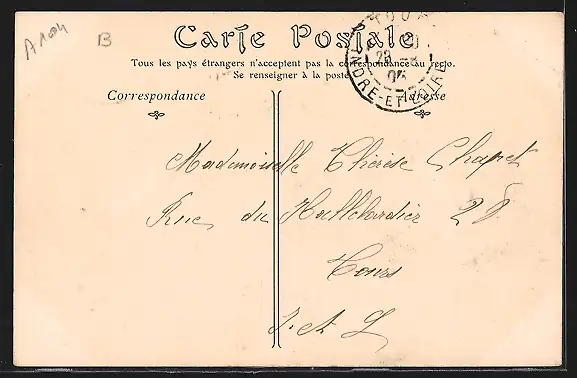 A 104
B
Carte Postale
Tous les pays étrangers n'acceptent pas la correspondance au recto.
Se renseigner à la poste
Correspondance
Adresse
TOURS
28
05
INDRE-ET-LOIRE
Mademoiselle Thérèse Chapet
Rue du Hallebardier 28
Tours
I. et L